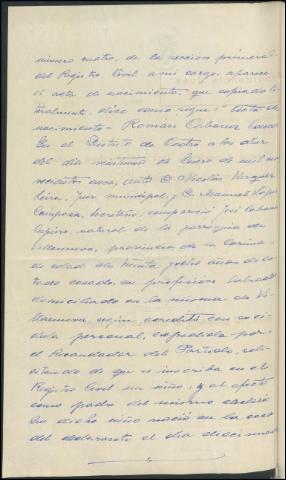 número cuatro, de la sección primera
del Registro Civil a mi cargo, aparece
el acta de nacimiento, que copiada li
teralmente, dice como sigue: "Acta de
nacimiento = Román Cabana
En el Distrito de Castro a las doce
del día veintiuno de Enero de mil no
vecientos once, ante D. Nicolás Vázquez
Loira, Juez municipal, y D. Manuel López
Secretario, compareció José Cabana
natural de la parroquia de
Villanueva, provincia de la Coruña,
de edad de treinta y ocho años, de es
tado casado, su profesión labrador
domiciliado en la misma de Vi
llanueva, según acredita con su cé
dula personal, expedida por
el Recaudador del Partido, soli
citando de que se inscriba en el
Registro Civil un niño; y al efecto
como padre del mismo declaró:
Que dicho niño nació en la casa
del declarante el día diecinueve